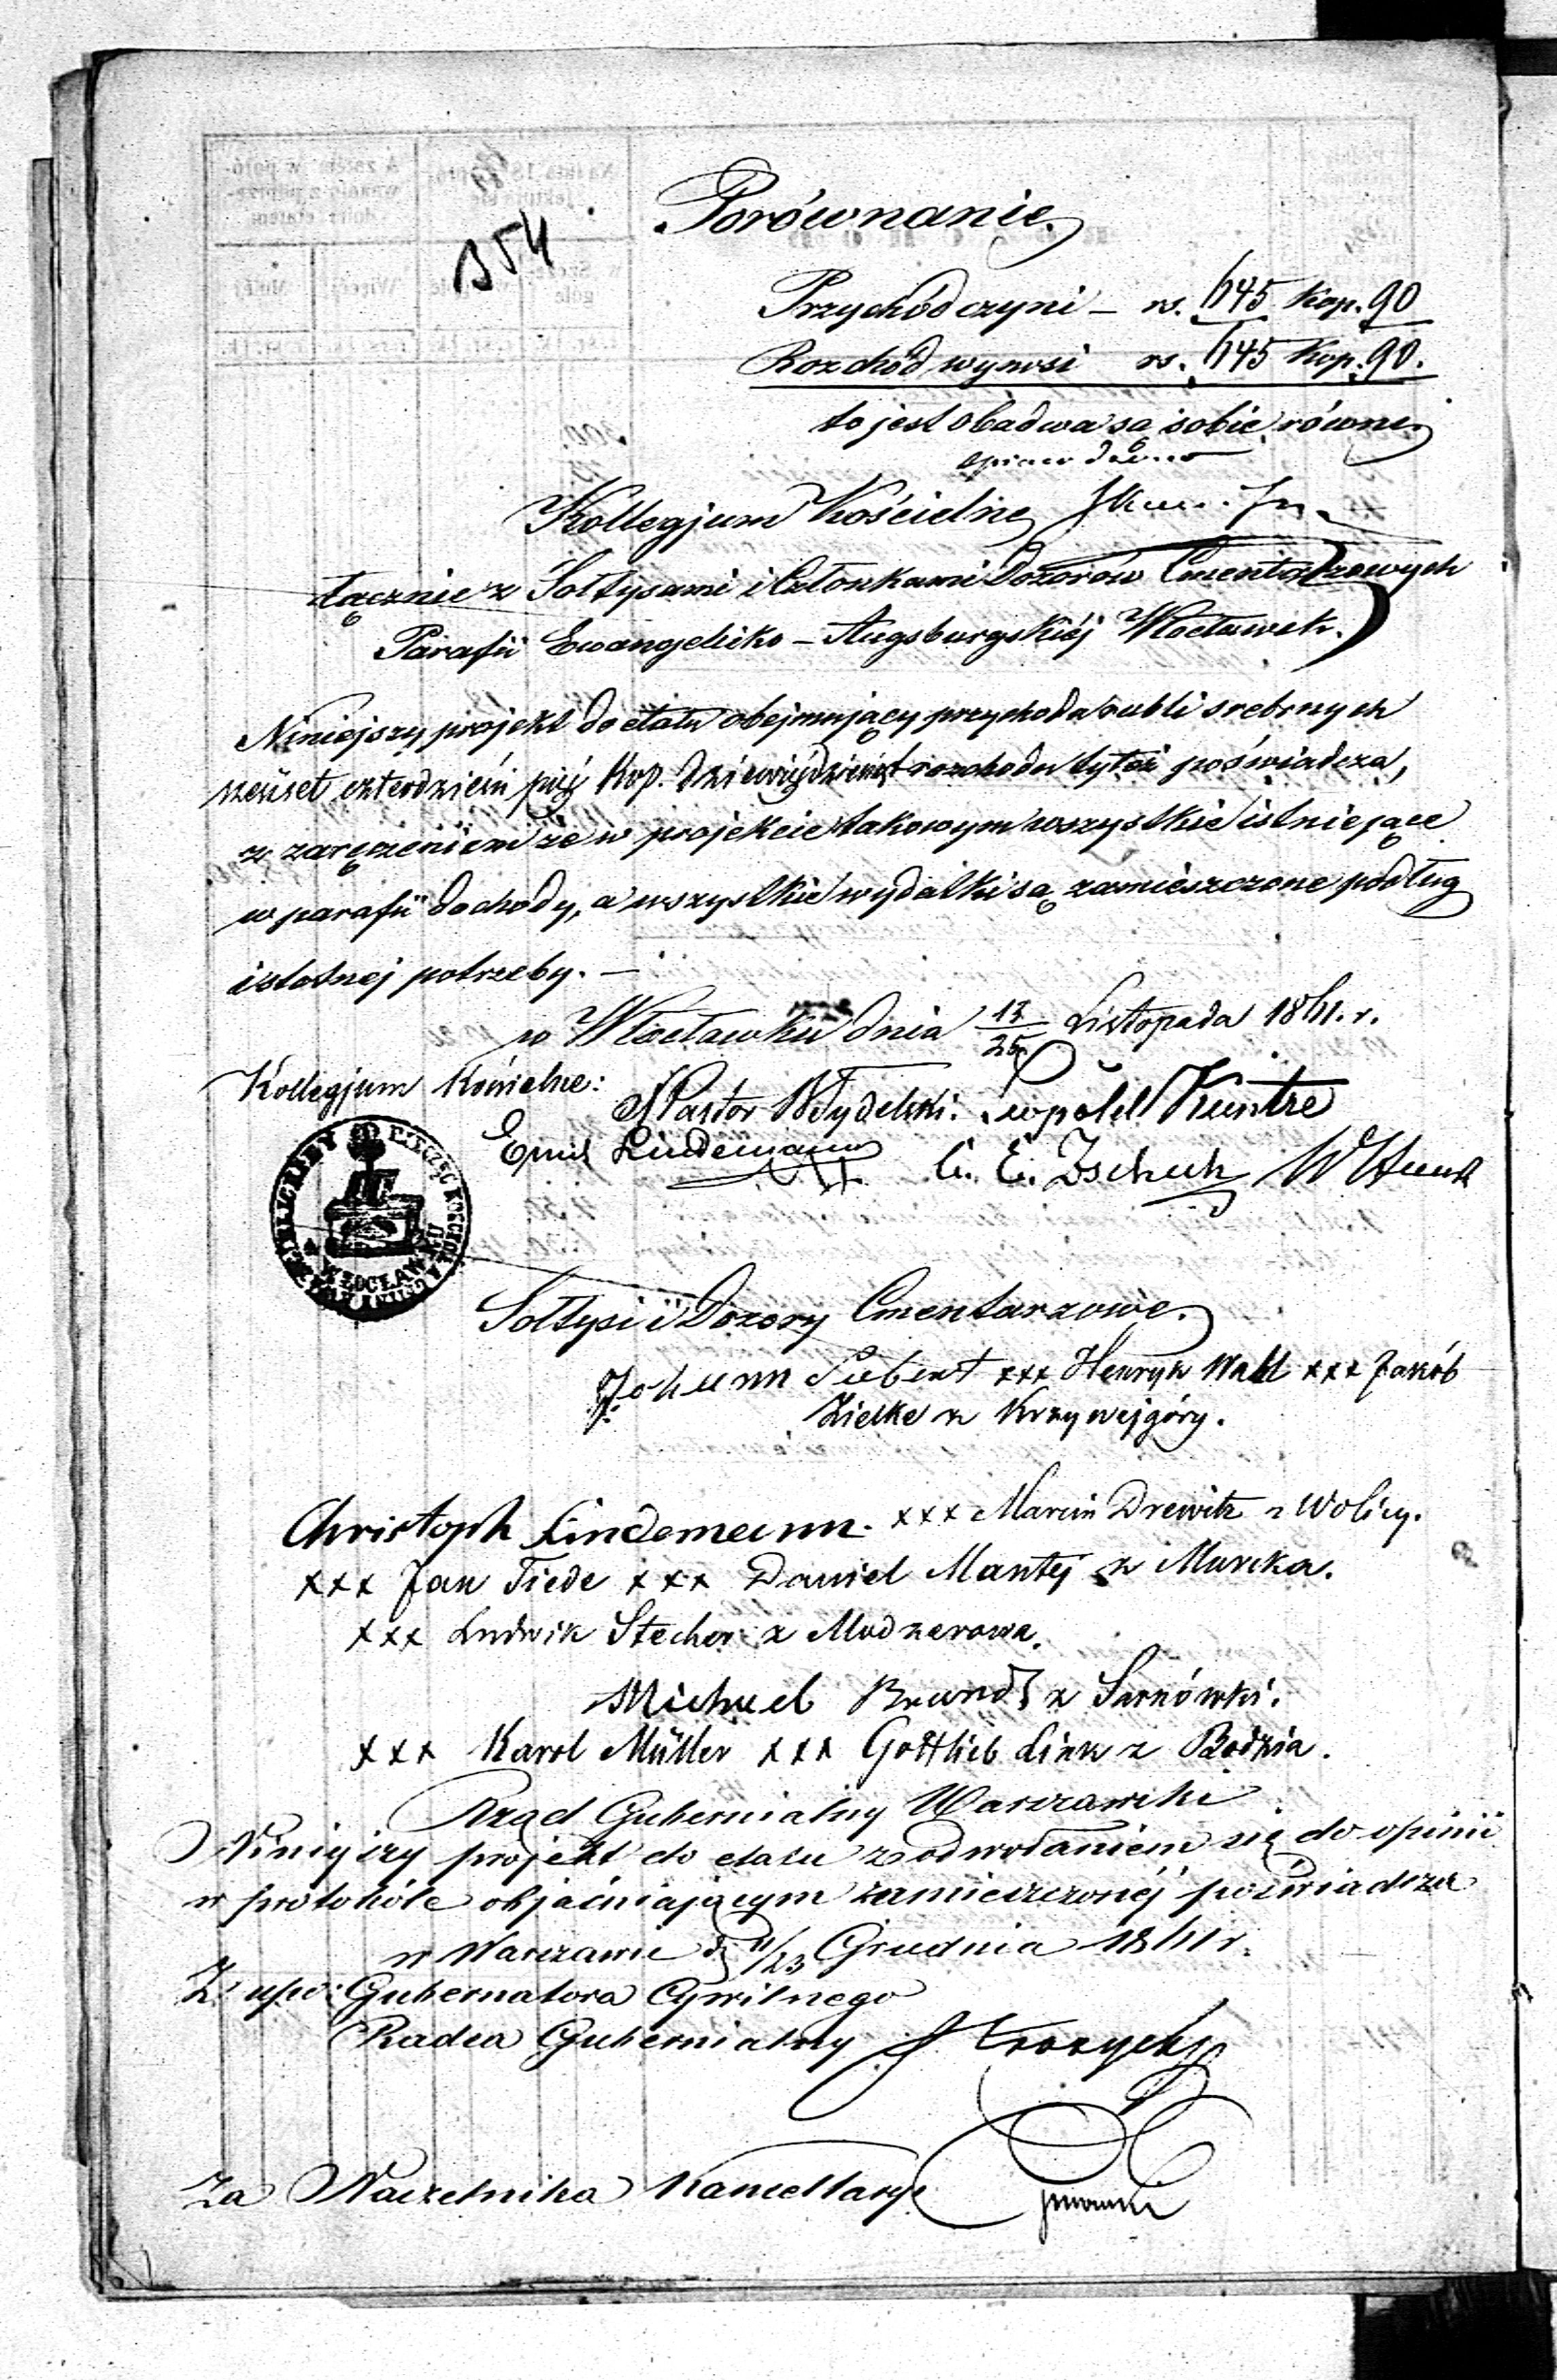 354
Porównanie.
Przychód czyni – rs. 645 Kop. 90
Rozchód wynosi rs. 645 Kop. 90.
to jest obadwa są sobie równe.
Kollegjum Kościelne
łącznie z Sołtysami i Członkami Dozorów Cmentarzowych
Parafii Ewangelicko – Augsburgskiéj Włocławek.
Niniejszy projekt do etatu obejmujący przychodu rubli srebrnych
sześćset czterdzieści pięć Kop. dziewięćdziesiąt rozchodu tyleż poświadcza,
z zaręczeniem że w projekcie takowym wszystkie istniejące
w parafii dochody, a wszystkie wydatki są zamieszczone podług
istotnej potrzeby. –
w Włocławku dnia 13/25 Listopada 1861. r.
Kollegjum Kościelne:
Pastor Leopold Kuntze
Emil Lindemann C. E. Zschech
WŁOCŁAWKU
Sołtysi i Dozory Cmentarzowe.
Johann Siebert xxx Henryk Wahl xxx Jakób
Zielke z Krzywejgóry.
Christoph Lindemann. xxx Marcin Drewitz z Wolicy.
xxx Jan Tiede xxx Daniel Mantej z
xxx Ludwik Stecher z Modzerowa.
Michael z Sarnówki.
xxx Karol Müller xxx Gottlieb Link z Bodzia.
Rząd Gubernialny Warszawski
Niniejszy projekt do etatu z odwołaniem się do opinii
w protokóle objaśniającym zamieszczonéj poświadcza
w Warszawie d. 11/23 Grudnia 1861 r.
Z up: Gubernatora Cywilnego
Radca Gubernialny
Za Naczelnika Kancellaryi